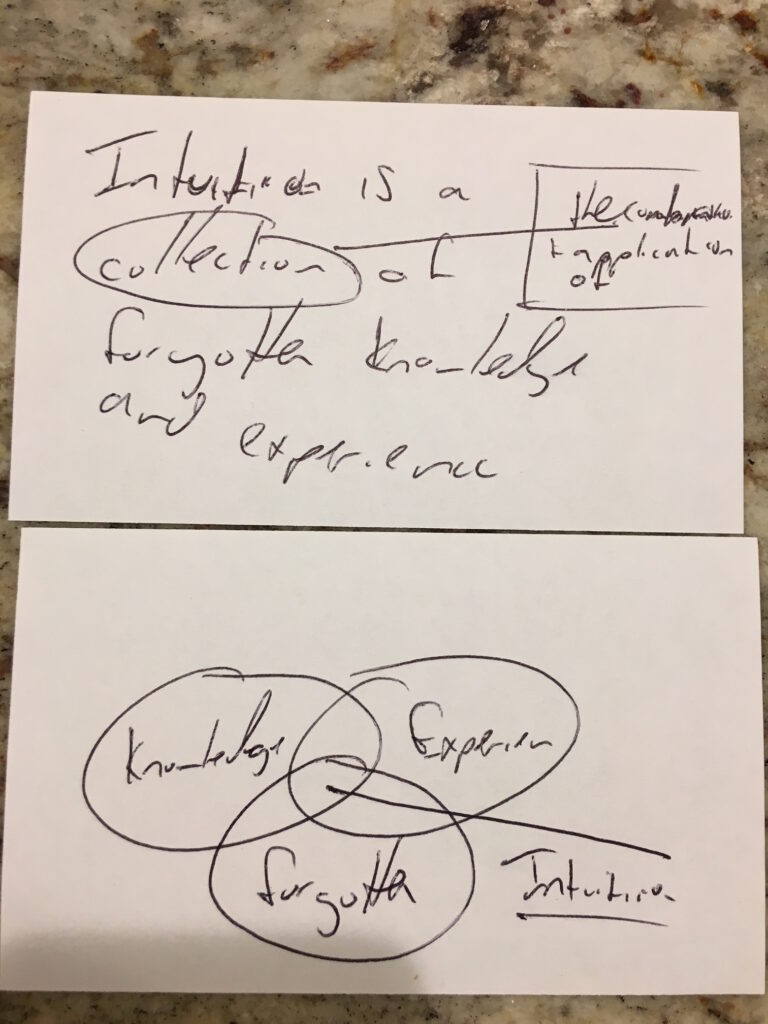 Intuition is a
collection of
forgotten knowledge
and experience
the
+ application
of
Knowledge
Experien
forgotten
Intuition